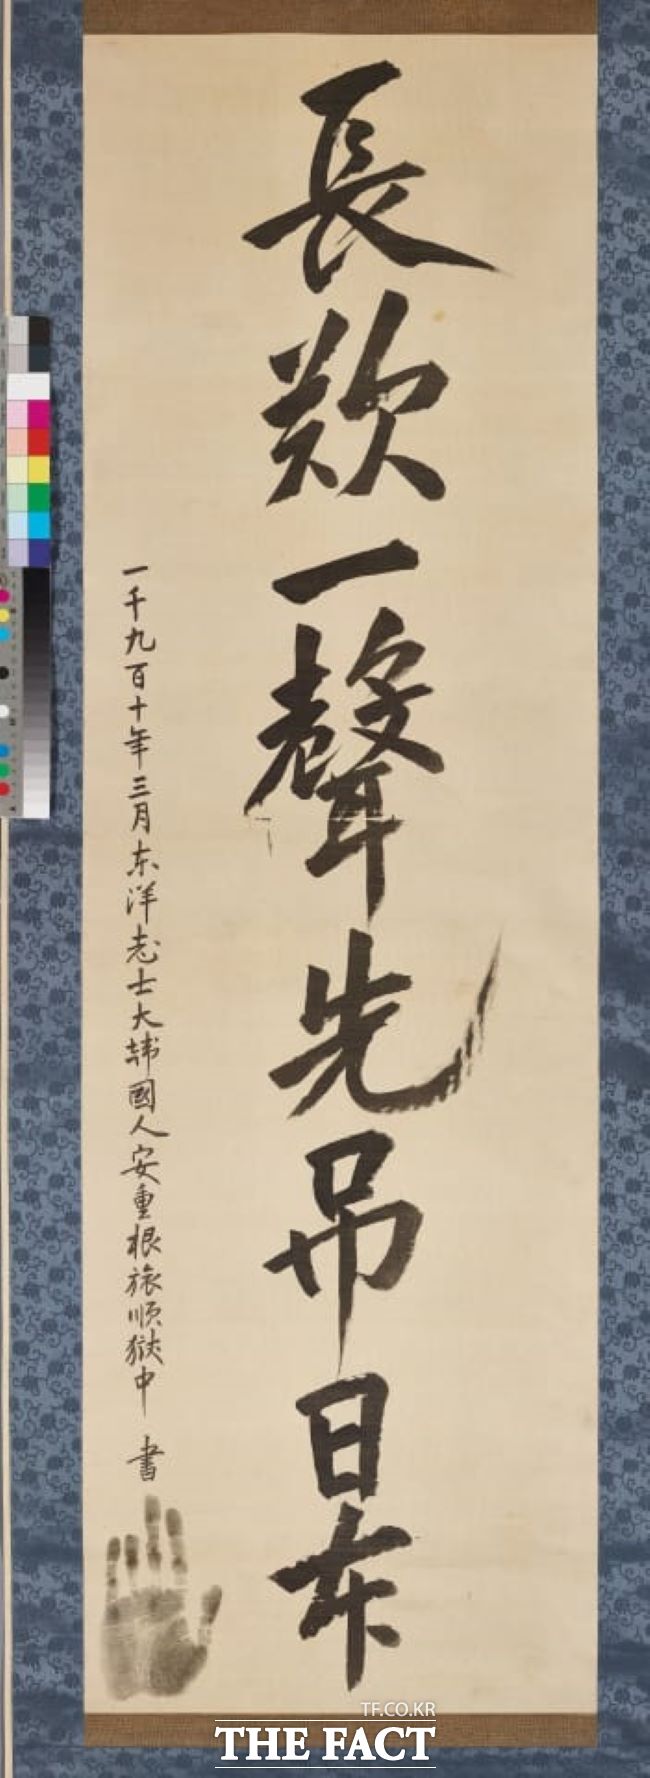 長歎一聲先吊日本
一千九百十年三月東洋志士大韓國人安重根旅順獄中 書
TF.CO.KR
THE FACT